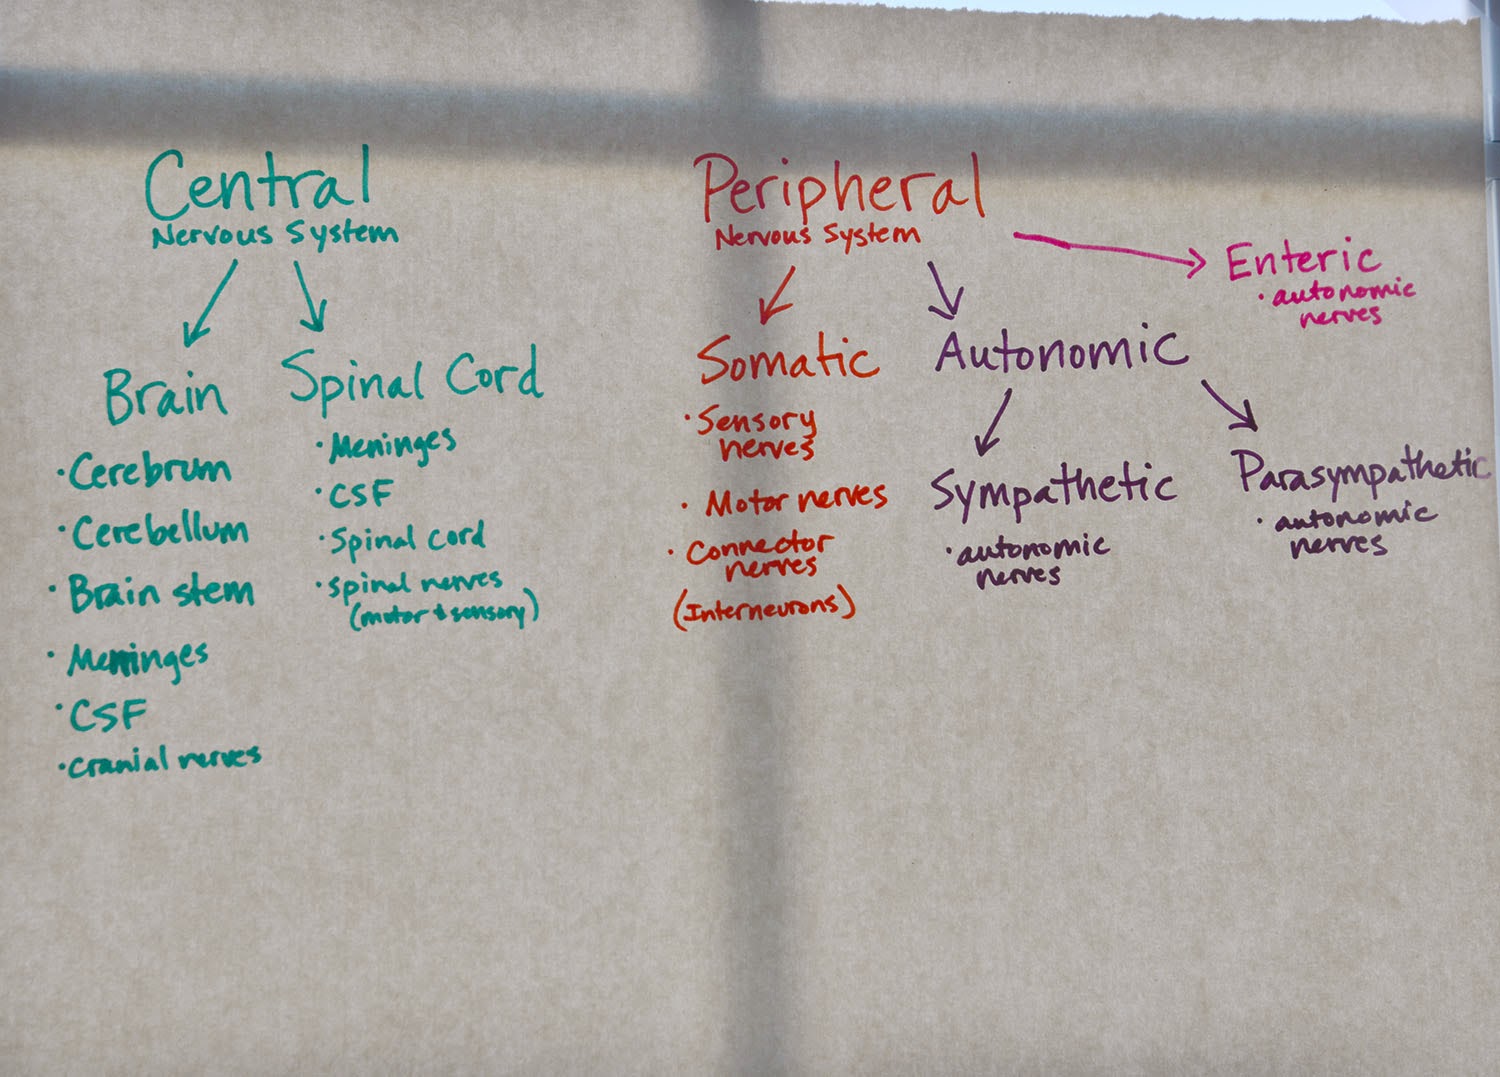 Central
Nervous System
Brain
• Cerebrum
• Cerebellum
• Brain stem
• Meninges
• CSF
• cranial nerves
Spinal Cord
• Meninges
• CSF
• Spinal cord
• spinal nerves
(motor + sensory)
Peripheral
Nervous System
Somatic
• Sensory
nerves
• Motor nerves
• Connector
nerves
(Interneurons)
Autonomic
Sympathetic
• autonomic
nerves
Parasympathetic
• autonomic
nerves
Enteric
• autonomic
nerves